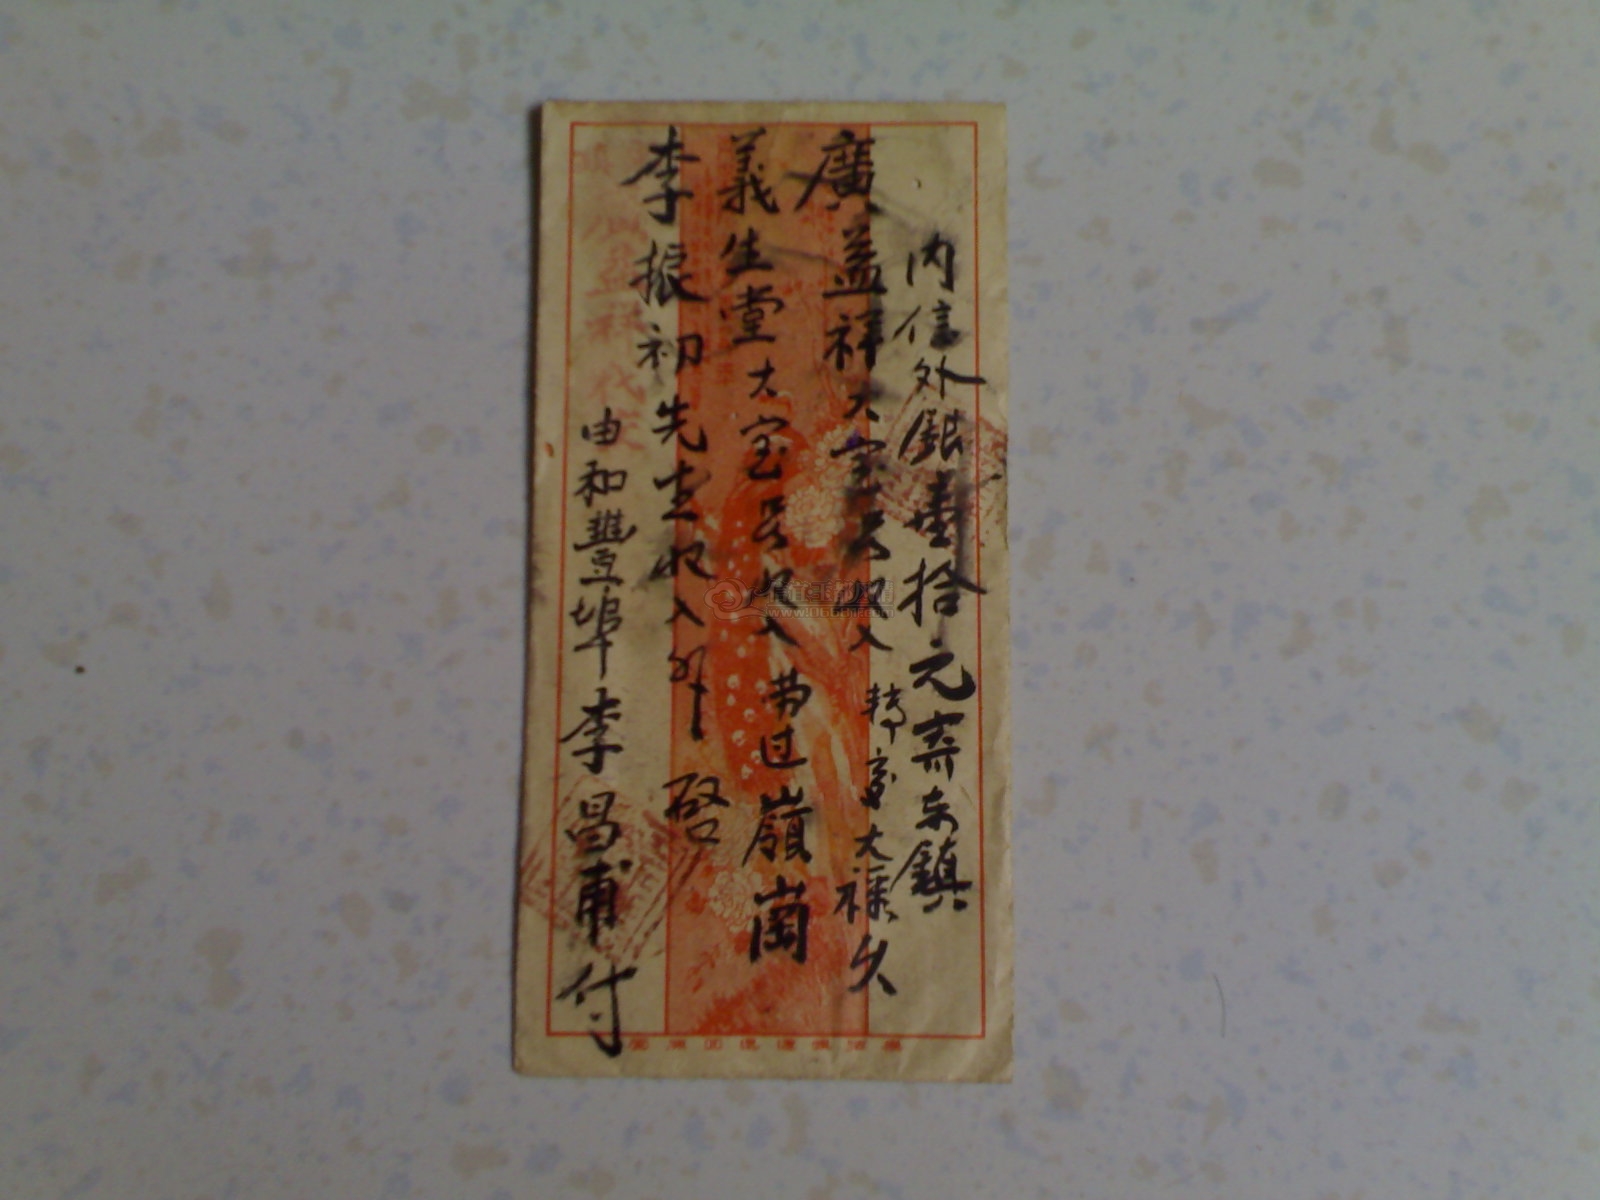 内信外銀壹拾元寄东鎮
廣益祥大宝号收入 轉交大祿乡
義生堂大宝号收入 带过嶺崗
李振初先生收入 啓
由和豐埠李昌甫付